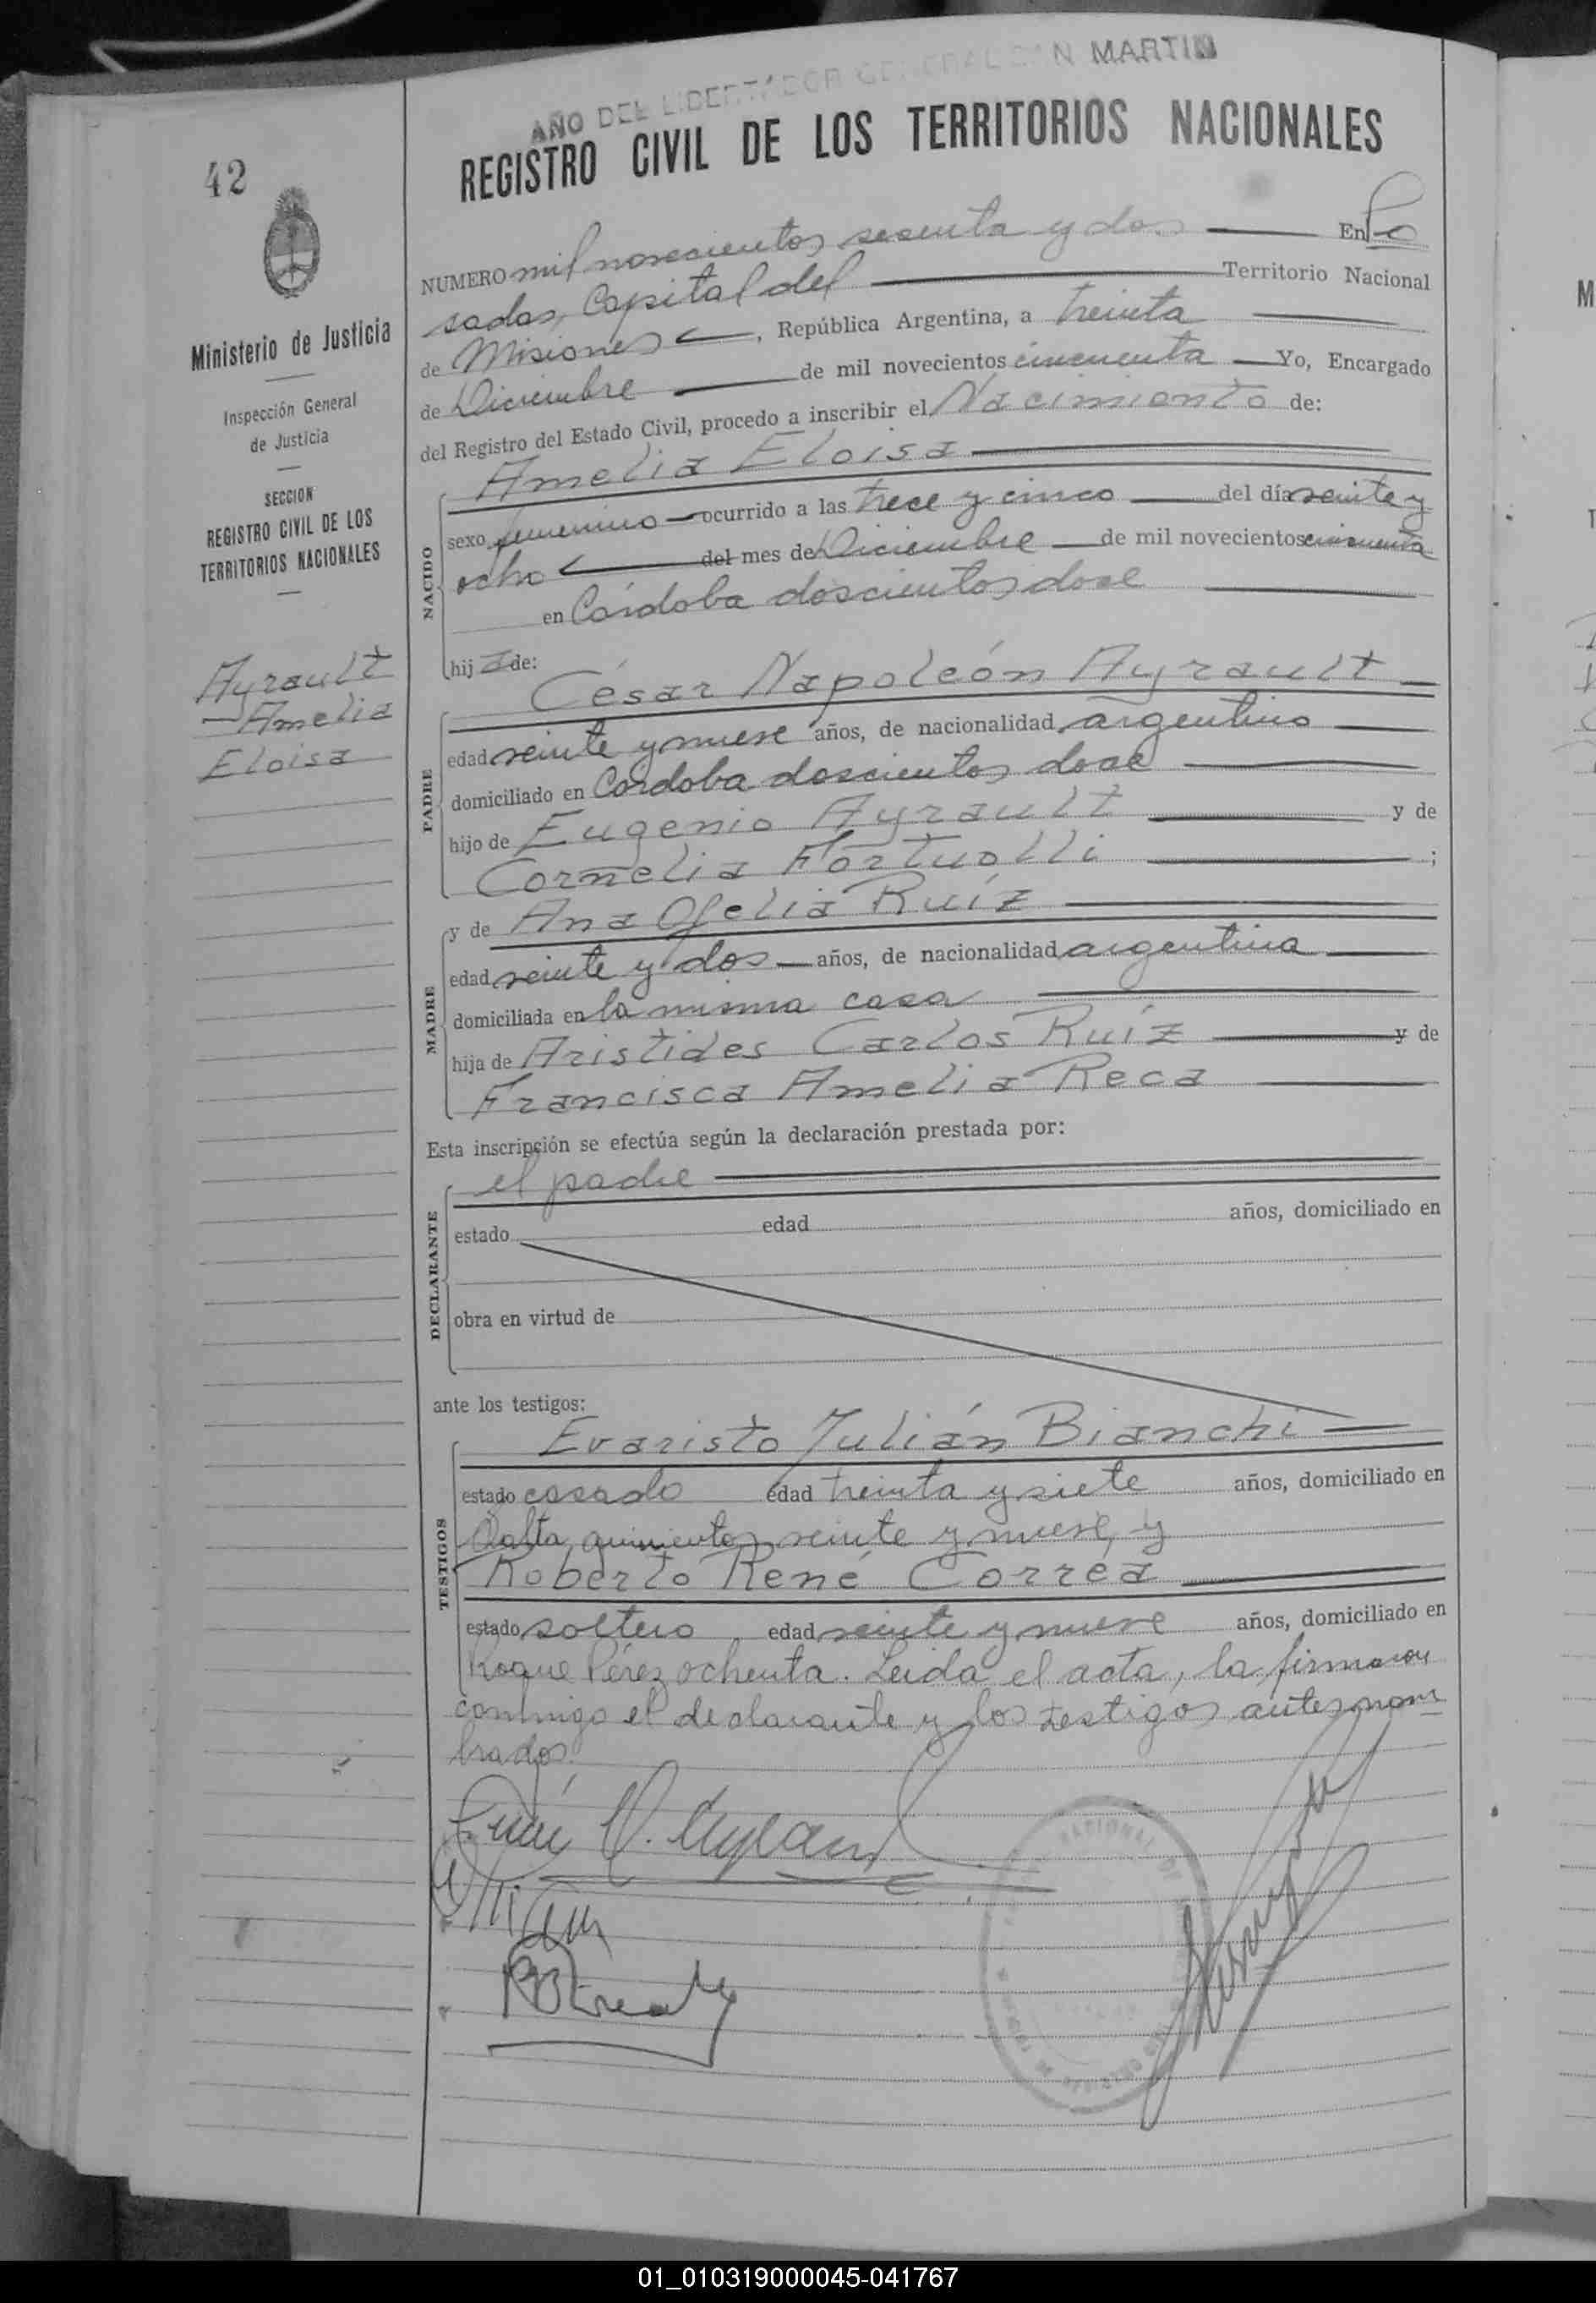 AÑO DEL LIBERTADOR GENERAL SAN MARTIN
REGISTRO CIVIL DE LOS TERRITORIOS NACIONALES
42
Ministerio de Justicia
Inspección General
de Justicia
SECCION
REGISTRO CIVIL DE LOS
TERRITORIOS NACIONALES
Ayrault
Amelia
Eloisa
NUMERO mil novecientos sesenta y dos En Po
sadas, Capital del Territorio Nacional
de Misiones, República Argentina, a treinta
de Diciembre de mil novecientos cincuenta Yo, Encargado
del Registro del Estado Civil, procedo a inscribir el Nacimiento de:
NACIDO
Amelia Eloisa
sexo femenino ocurrido a las trece y cinco del día veinte y
ocho del mes de Diciembre de mil novecientos cincuenta
en Córdoba doscientos doce
hija de:
PADRE
César Napoleón Ayrault
edad veinte y nueve años, de nacionalidad argentino
domiciliado en Córdoba doscientos doce
hijo de Eugenio Ayrault y de
Cornelia Fortuolli ;
MADRE
y de Ana Ofelia Ruíz
edad veinte y dos años, de nacionalidad argentina
domiciliada en la misma casa
hija de Aristides Carlos Ruíz y de
Francisca Amelia Reca
Esta inscripción se efectúa según la declaración prestada por:
DECLARANTE
el padre
estado edad años, domiciliado en
obra en virtud de
ante los testigos:
TESTIGOS
Evaristo Julián Bianchi
estado casado edad treinta y siete años, domiciliado en
Salta quinientos veinte y nueve, y
Roberto René Corréa
estado soltero edad veinte y nueve años, domiciliado en
Roque Pérez ochenta. Leida el acta, la firmaron
conmigo el declarante y los testigos antes nom
brados.
01_010319000045-041767